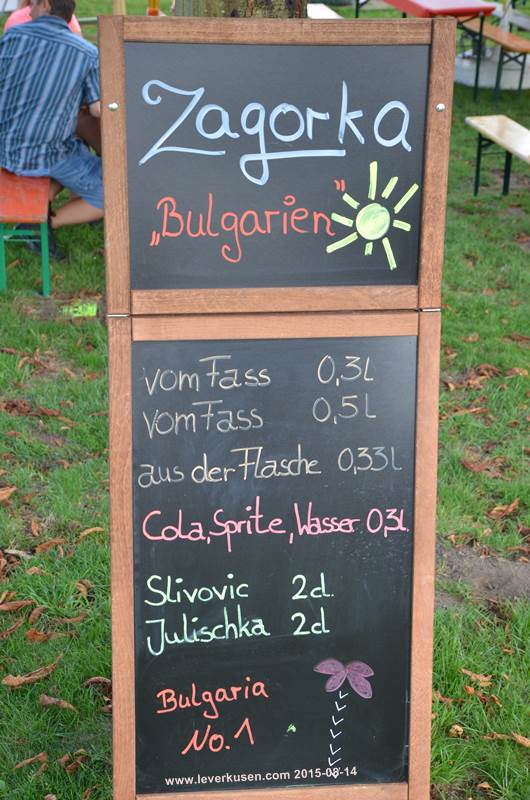 Zagorka
„Bulgarien"
vom Fass 0,3L
vom Fass 0,5L
aus der Flasche 0,33L
Cola, Sprite, Wasser 0,3L.
Slivovic 2cl.
Julischka 2cl
Bulgaria
No. 1
www.leverkusen.com 2015-08-14